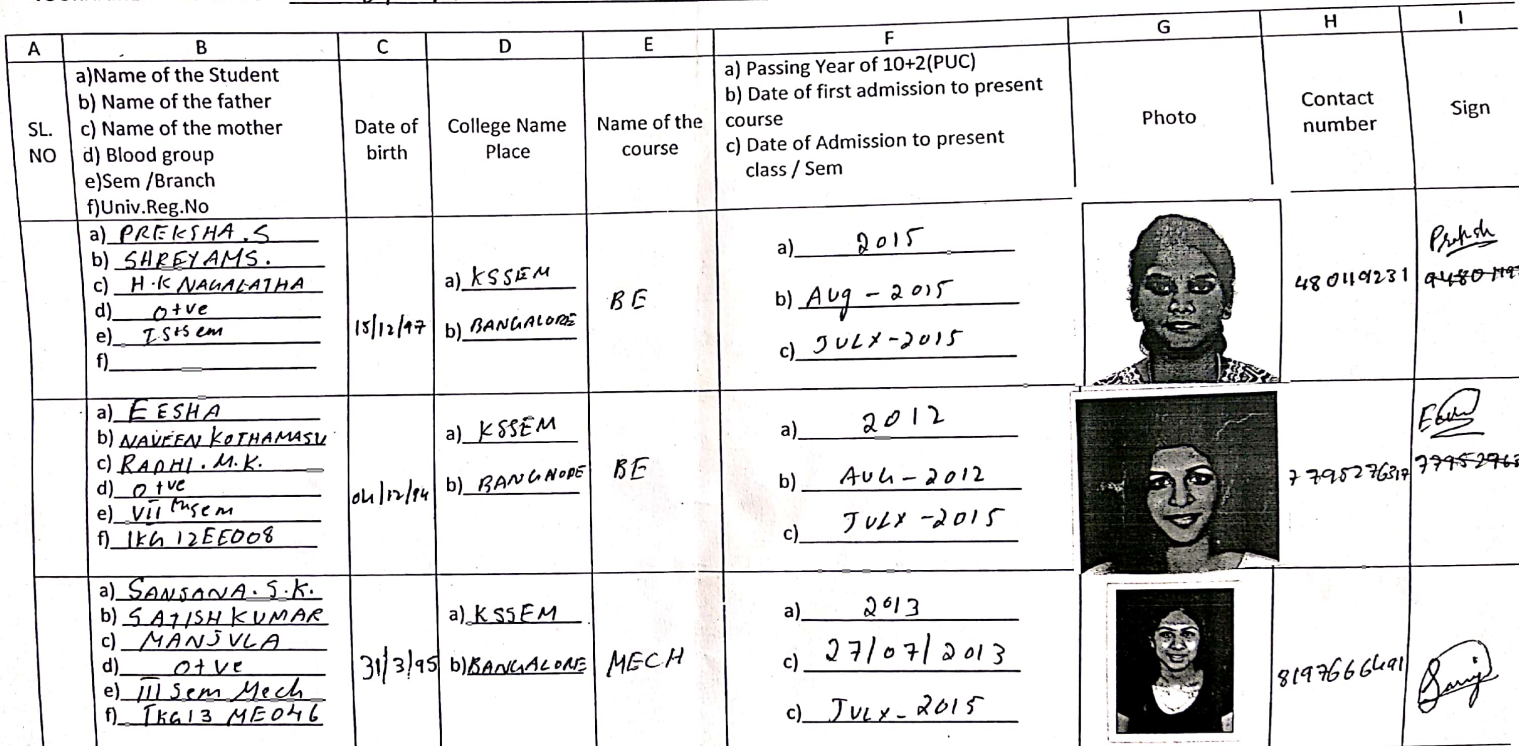 A B C D E F G H I
SL. NO
a)Name of the Student
b) Name of the father
c) Name of the mother
d) Blood group
e)Sem /Branch
f)Univ.Reg.No
Date of birth
College Name Place
Name of the course
a) Passing Year of 10+2(PUC)
b) Date of first admission to present
course
c) Date of Admission to present
class / Sem
Photo
Contact number
Sign
a) PREKSHA.S
b) SHREYAMS.
c) H.K NAGALATHA
d) O+ve
e) Ist sem
f)
15/12/97
a) KSSEM
b) BANGALORE
BE
a) 2015
b) Aug - 2015
c) JULY-2015
480119231
a) EESHA
b) NAVEEN KOTHAMASU
c) RADHI.M.K.
d) O+ve
e) VII th sem
f) 1KG 12EE008
04/12/94
a) KSSEM
b) BANGALORE
BE
a) 2012
b) AUG-2012
c) JULY-2015
7795276317
a) SANJANA.S.K.
b) SATISH KUMAR
c) MANJULA
d) O+ve
e) III Sem Mech
f) 1KG13 ME046
31/3/95
a) KSSEM
b) BANGALORE
MECH
a) 2013
c) 27/07/2013
c) JULY-2015
8197666491